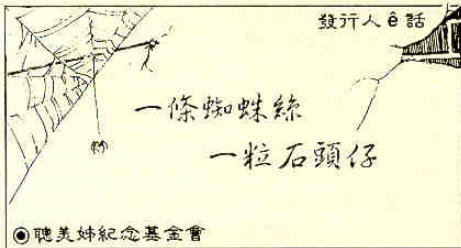 發行人ê話
一條蜘蛛絲
一粒石頭仔
◉聰美姊紀念基金會